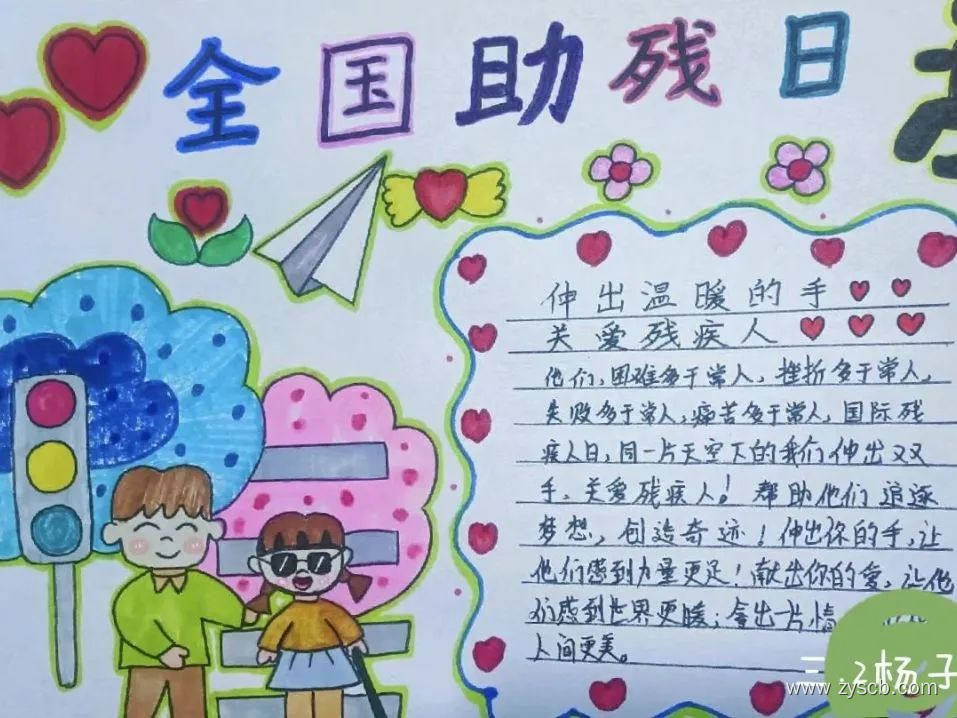 全国助残日
伸出温暖的手
关爱残疾人
他们,困难多于常人,挫折多于常人,
失败多于常人,痛苦多于常人,国际残
疾人日,同一片天空下的我们伸出双
手,关爱残疾人!帮助他们追逐
梦想,创造奇迹!伸出你的手,让
他们感到力量更足!献出你的爱,让他
们感到世界更暖;拿出一片情
人间更美。
三.2杨子
www.zyscb.com